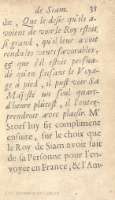 de Siam. 33
de, Que le desir qu'ils a-
voient de voir le Roy estoit
si grand, qu'il leur avoit
rendu les cœurs favorables,
que s'il estoit persua-
dé qu'en faisant le Voya-
ge à pied, il pust voir Sa
Majesté un seul quart
d'heure plûtost, il l'entre-
prendroit avec plaisir. Mr
Storf luy fit compliment
ensuite, sur le choix que
le Roy de Siam avoit fait
de sa Personne pour l'en-
voyer en France, & l'Am-